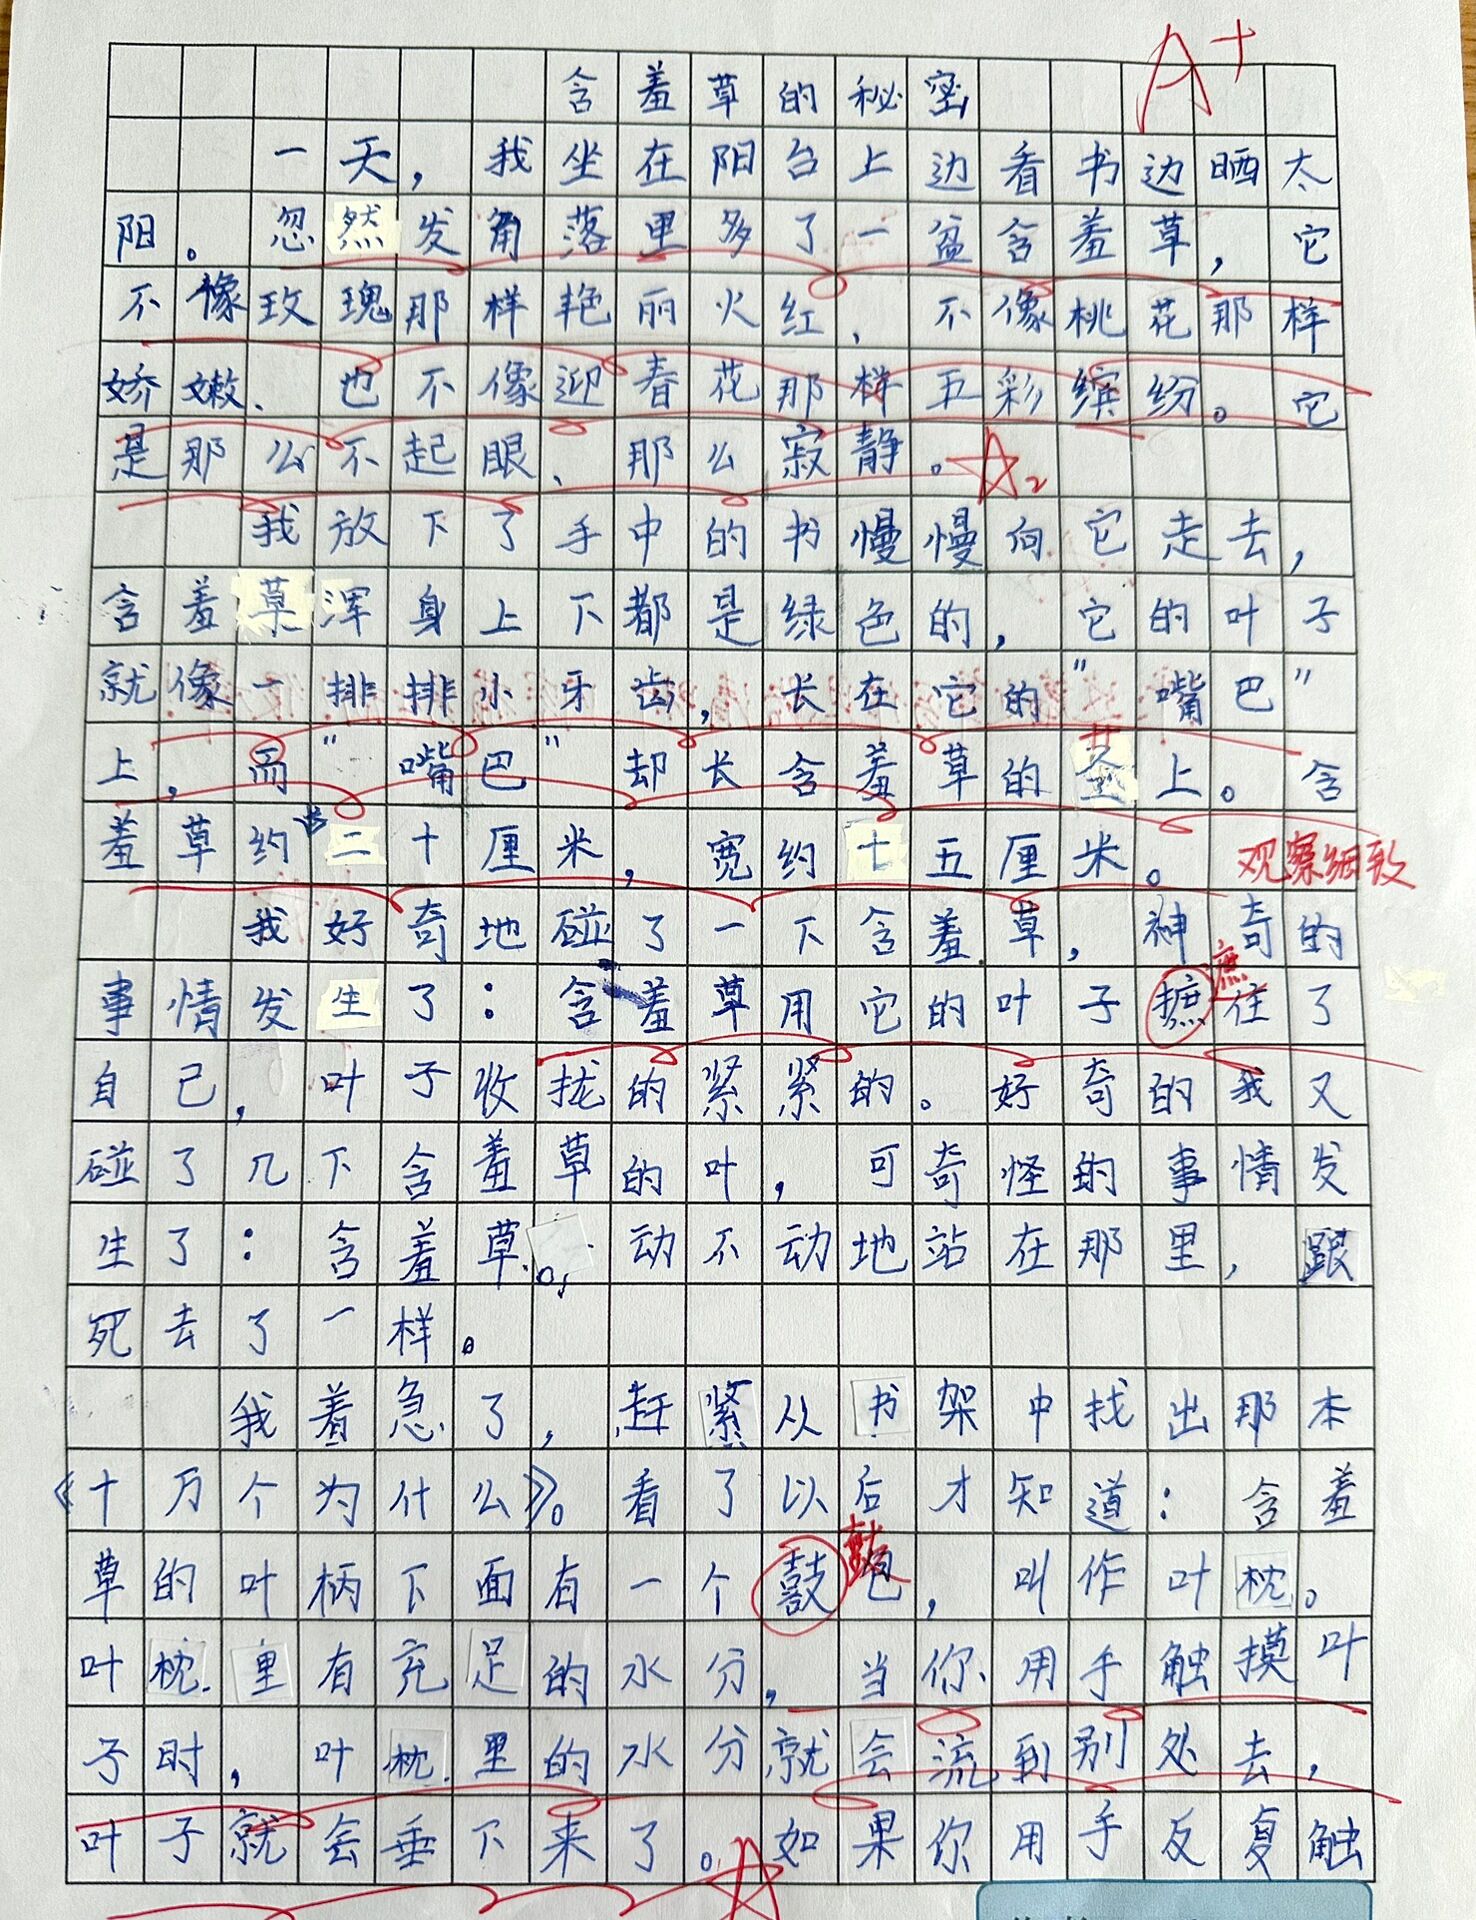 含羞草的秘密
A+
一天，我坐在阳台上边看书边晒太
阳。忽然发角落里多了一盆含羞草，它
不像玫瑰那样艳丽火红、不像桃花那样
娇嫩、也不像迎春花那样五彩缤纷。它
是那么不起眼、那么寂静。
2
我放下了手中的书慢慢向它走去，
含羞草浑身上下都是绿色的，它的叶子
就像一排排小牙齿，长在它的"嘴巴"
上，而"嘴巴"却长含羞草的茎上。含
羞草约二十厘米，宽约十五厘米。
观察细致
我好奇地碰了一下含羞草，神奇的
事情发生了：含羞草用它的叶子摭住了
遮
自己，叶子收拢的紧紧的。好奇的我又
碰了几下含羞草的叶，可奇怪的事情发
生了：含羞草。，动不动地站在那里，跟
死去了一样。
我着急了，赶紧从书架中找出那本
《十万个为什么》。看了以后才知道：含羞
草的叶柄下面有一个鼓包，叫作叶枕。
叶枕里有充足的水分，当你用手触摸叶
子时，叶枕里的水分就会流到别处去，
叶子就会垂下来了。如果你用手反复触